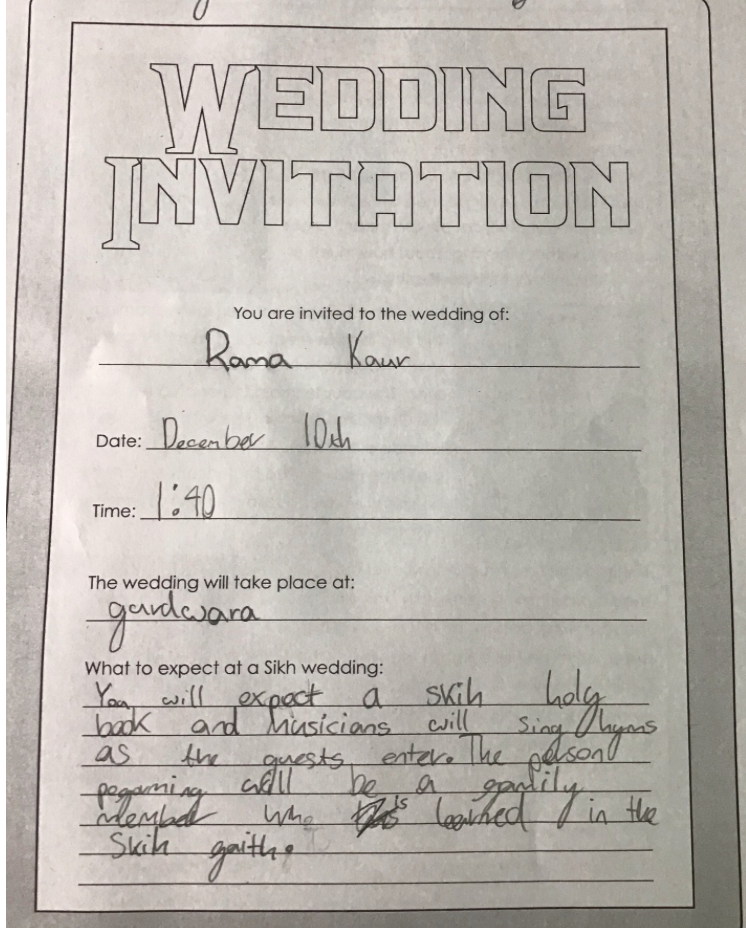 WEDDING
INVITATION
You are invited to the wedding of:
Rama Kaur
Date: December 10th
Time: 1:40
The wedding will take place at:
gurdwara
What to expect at a Sikh wedding:
You will expect a skih holy
book and musicians will sing hyms
as the guests enter. The person
pegaming will be a gamily
member who is learned in the
Skih gaith.